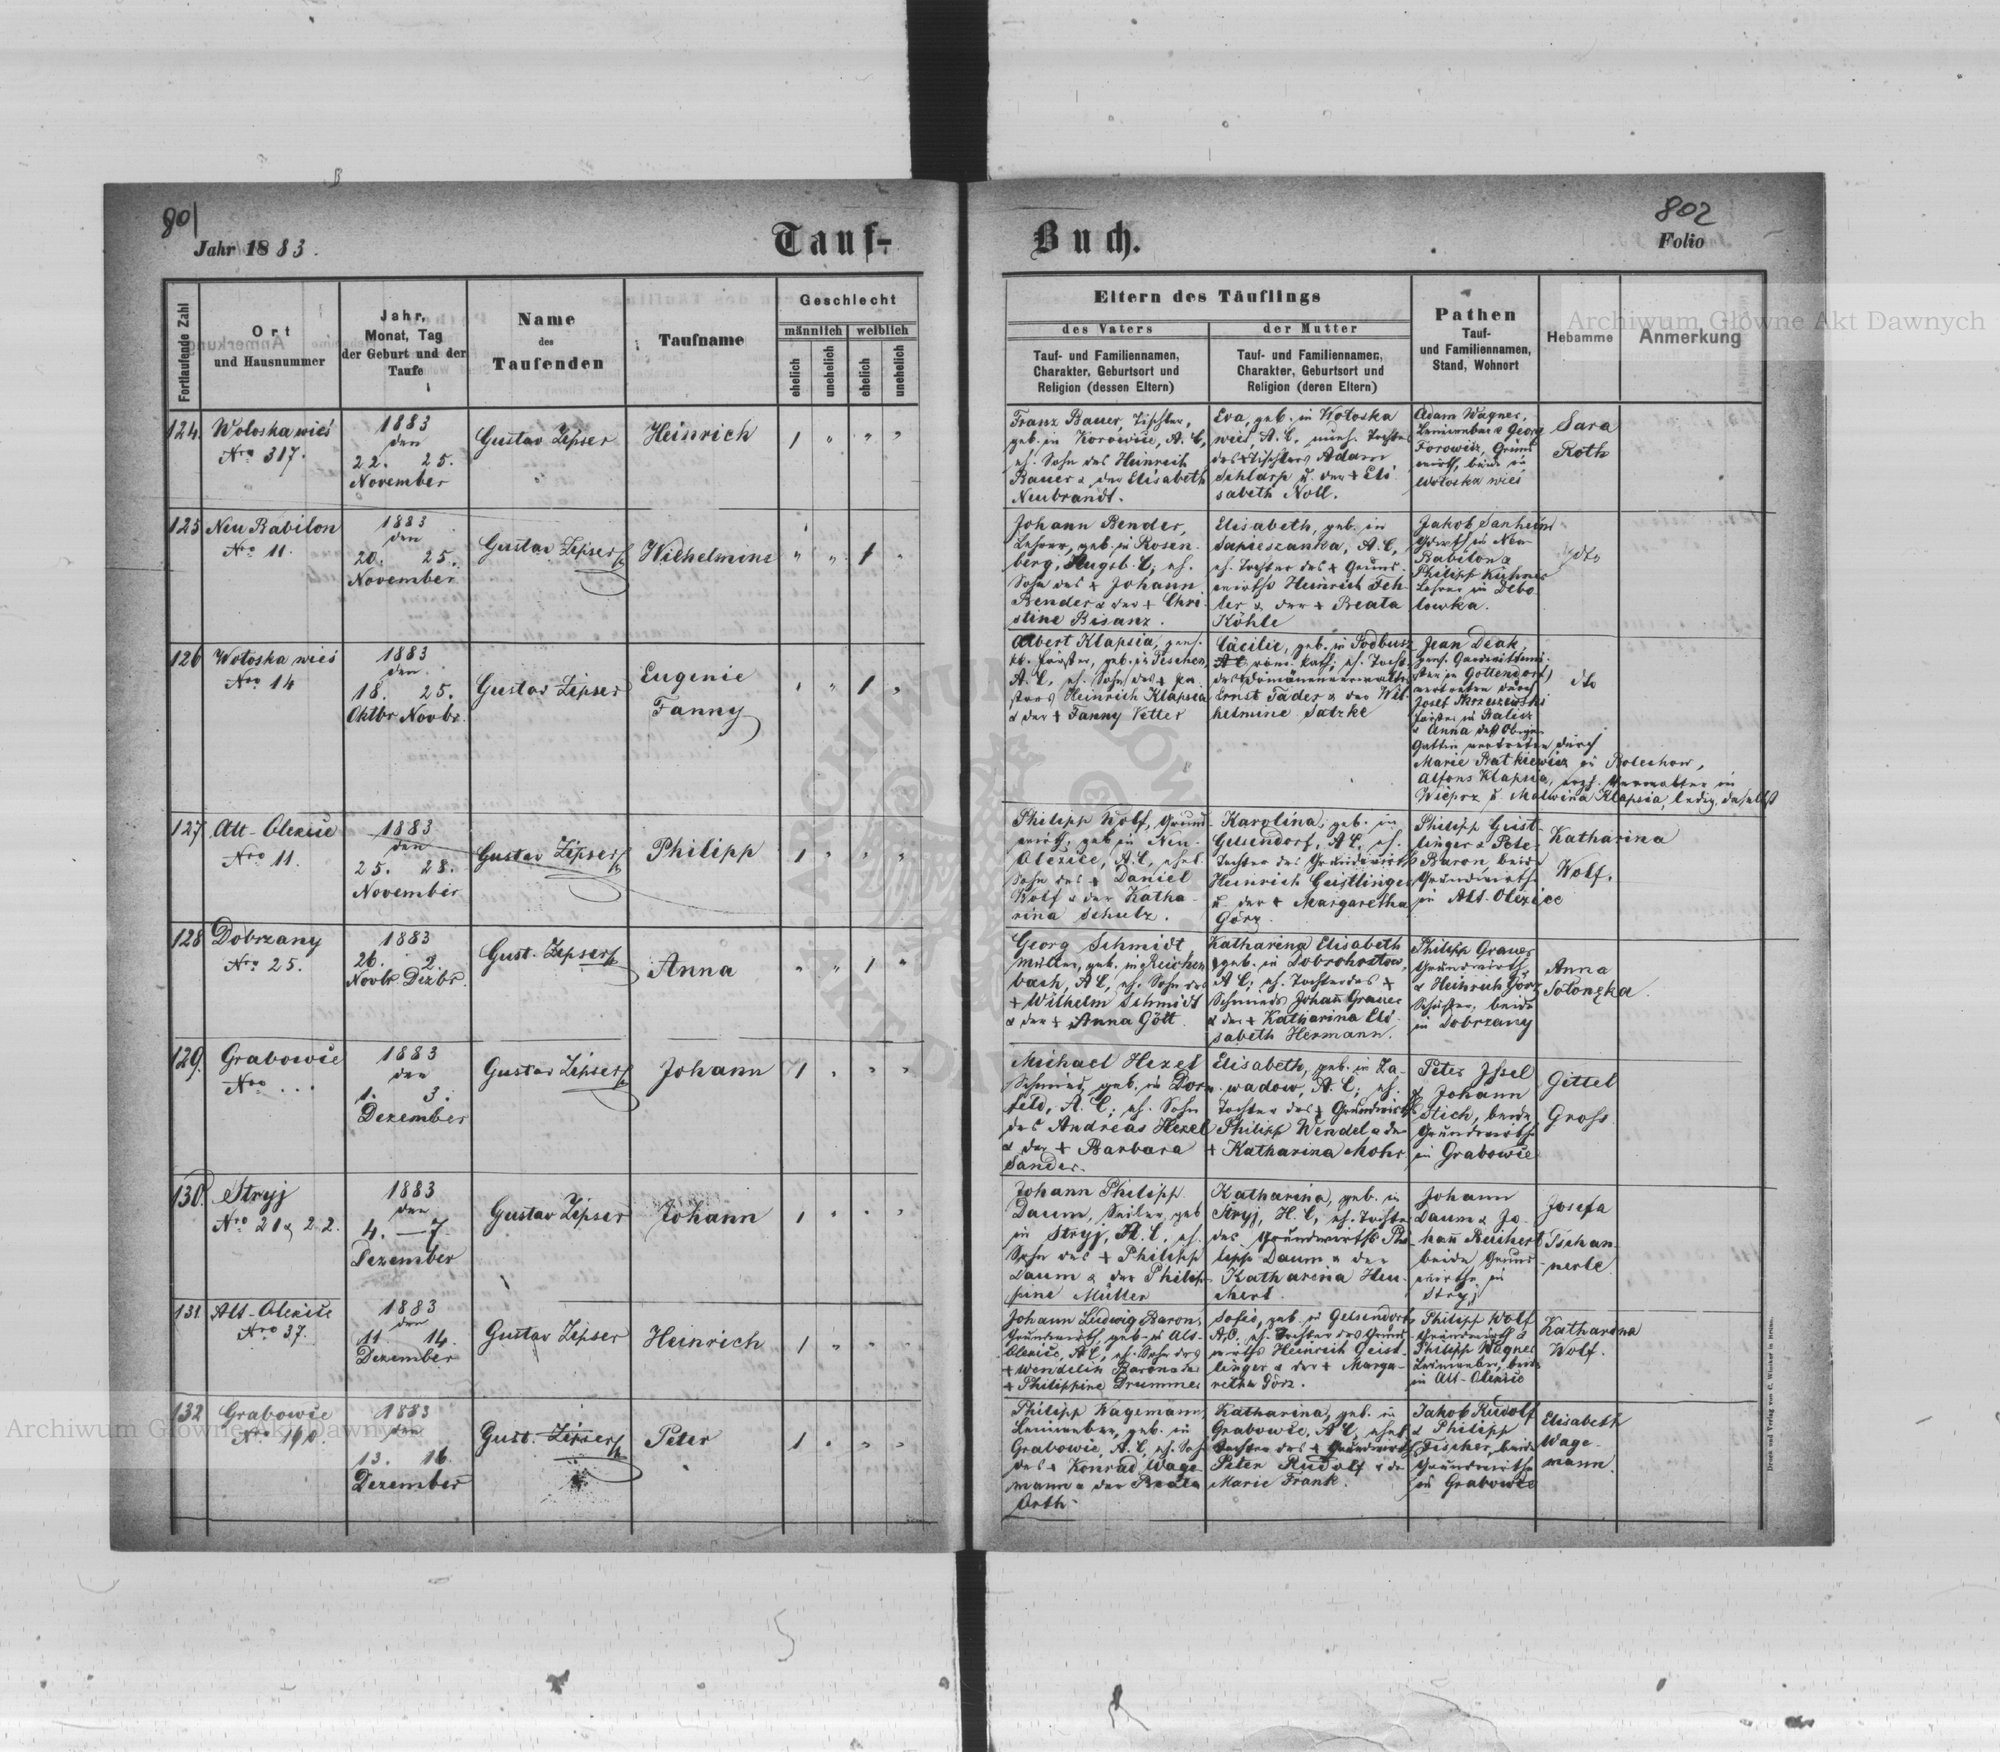 801
802
Jahr 1883.
Tauf-Buch.
Folio
Fortlaufende Zahl
Ort
und Hausnummer
Jahr,
Monat, Tag
der Geburt und der
Taufe
Name
des
Taufenden
Taufname
Geschlecht
männlich
weiblich
ehelich
unehelich
ehelich
unehelich
Eltern des Täuflings
des Vaters
Tauf- und Familiennamen,
Charakter, Geburtsort und
Religion (dessen Eltern)
der Mutter
Tauf- und Familiennamen,
Charakter, Geburtsort und
Religion (deren Eltern)
Pathen
Tauf-
und Familiennamen,
Stand, Wohnort
Hebamme
Anmerkung
124.
Wołoska wieś
Nro 317.
1883
den
22. 25.
November
Gustav Zipser
Heinrich
1 " " "
Franz Bauer, Tischler,
geb. in Korowice, A. C,
eh. Sohn des Heinrich
Bauer & der Elisabeth
Neubrandt.
Eva, geb. in Wołoska
wieś, A. C, Tochter
des Tischlers Adam
Schlarp u. der + Eli
sabeth Noll.
Adam Wagner,
Leinweber & Georg
Forowicz, Grund
wirth, beide in
Wołoska wieś
Sara
Roth
125
Neu Babilon
Nro 11.
1883
den
20. 25.
November
Gustav Zipser
Wilhelmine
" " 1 "
Johann Bender,
Lehrer, geb. in Rosen
berg, Augsb. C; eh.
Sohn des + Johann
Bender & der + Chri
stine Bisanz.
Elisabeth, geb. in
Sapieszanka, A. C,
eh. Tochter des + Grund
wirths Heinrich Feh
ler & der + Beata
Köhle
Jakob Sanheim
Grwth in Neu
Babilon &
Philipp Kühner
Lehrer in Debo
lowka.
dto
126
Wołoska wieś
Nro 14
1883
den
18. 25.
Oktbr Novbr.
Gustav Zipser
Eugenie
Fanny
" " 1 "
Albert Klapsia, pens.
kk. Förster, geb. in Teschen,
A. C, eh. Sohn des +
Heinrich Klapsia
& der + Fanny Vetter
Cäcilie, geb. in Podbusz
röm. kath; eh. Tocht.
des Domänenverwalters
Ernst Tader & der Wil
helmine Satzke
Jean Deak,
in Gottendorf,
vertreten durch
Josef
Förster in Kalisz
& Anna des Obigen
Gattin vertreten durch
Marie Ratkiewicz in Bolechow,
Alfons Klapsia, Verwalter in
Wieprz u. Malwina Klapsia, ledig, daselbst
dto
127
Alt-Olexice
Nro 11.
1883
den
25. 28.
November
Gustav Zipser
Philipp
1 " " "
Philipp Wolf, Grund
wirth; geb. in Neu-
Olexice, A.C, ehel.
Sohn des + Daniel
Wolf & der Katha-
rina Schulz.
Karolina, geb. in
Gelsendorf, A C, eh.
Tochter des Grundwirths
Heinrich Geistlinger
u. der + Margaretha
Görz
Philipp Geist
linger & Peter
Baron beide
Grundwirthe
in Alt-Olexice
Katharina
Wolf.
128
Dobrzany
Nro 25.
1883
26. 2.
Novbr Dezbr.
Gust. Zipser
Anna
" " 1 "
Georg Schmidt
Müller, geb. in Reichen
bach, A C, eh. Sohn des
+ Wilhelm Schmidt
& der + Anna Gött
Katharina Elisabeth
geb. in Dobrohostow,
A C; eh. Tochter des +
Schmieds Johann Grauer
& der + Katharina Eli
sabeth Hermann.
Philipp Grauer
Grundwirth
& Heinrich Görz
Schuster, beide
in Dobrzany
Anna
129.
Grabowce
Nro ...
1883
den
1. 3.
Dezember
Gustav Zipser
Johann
1 " " "
Michael Hezel
Schmied, geb. in Dorn
feld, A. C; eh. Sohn
des Andreas Hezel
& der + Barbara
Sander.
Elisabeth, geb. in Za-
wadow, A. C; eh.
Tochter des + Grundwirths
Philipp Wendel & der
+ Katharina Mohr
Peter Issel
& Johann
Stich, beide
Grundwirthe
in Grabowce
Gittel
Gross
130.
Stryj
Nro 21 & 22.
1883
den
4. — 7.
Dezember
Gustav Zipser
Johann
1 " " "
Johann Philipp
Daum, Seiler, geb
in Stryj, H. C, eh.
Sohn des + Philipp
Daum & der Philip
pine Müller
Katharina, geb. in
Stryj, H. C, eh. Tochter
des Grundwirths Phi
lipp Daum & der
Katharina Heu-
chert
Johann
Daum & Jo-
hann Reichert
beide Grund
wirthe in
Stryj
Josefa
Tschan
nerle
131
Alt-Olexice
Nro 37.
1883
den
11 14.
Dezember
Gustav Zipser
Heinrich
1 " " "
Johann Ludwig Baron,
Grundwirth, geb. in Alt-
Olexice, A C, eh. Sohn des
+ Wendelin Baron & der
+ Philippine Drummer
Sofie, geb. in Gelsendorf
A.C. eh. Tochter des Grund
wirths Heinrich Geist-
linger & der + Marga-
retha Görz.
Philipp Wolf
Grundwirth &
Philipp Wagner
Leinweber, beide
in Alt-Olexice
Katharina
Wolf.
132
Grabowce
1883
den
13. 16.
Dezember
Gust. Zipser
Peter
1 " " "
Philipp Wagemann,
Leinweber, geb. in
Grabowce, A. C, eh. Sohn
des + Konrad Wage
mann & der Beata
Orth.
Katharina, geb. in
Grabowce, A C, ehel.
Tochter des + Grundwirths
Peter Rudolf & der
Marie Frank.
Jakob Rudolf
& Philipp
Fischer, beide
Grundwirthe
in Grabowce
Elisabeth
Wage-
mann.
Druck und Verlag von C. Winiker in Brünn.
Archiwum Główne Akt Dawnych
Archiwum Główne Akt Dawnych